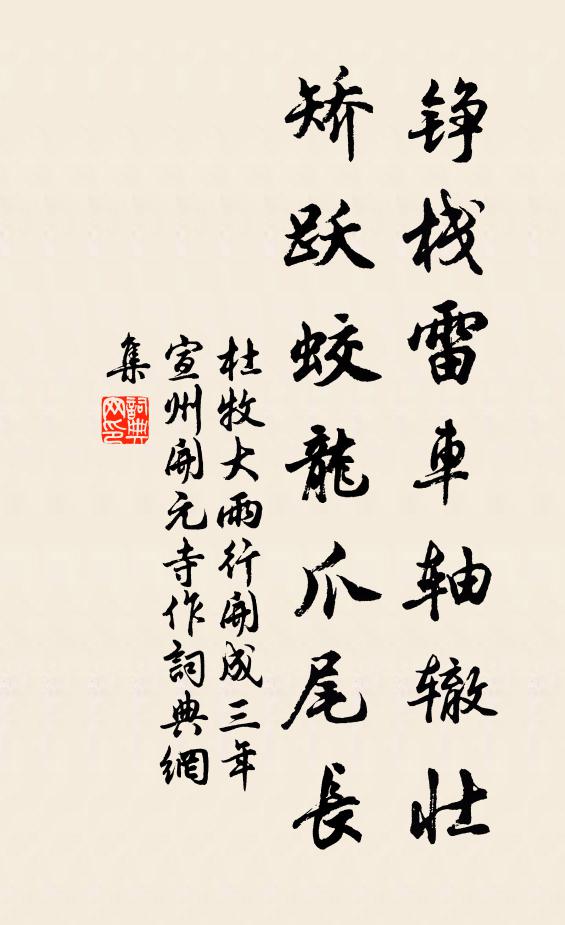 铮栈雷車轴辙壮
矫跃蛟龍爪尾長
杜牧大雨行開成三年
宣州開元寺作詞典網
集
詞典
网印